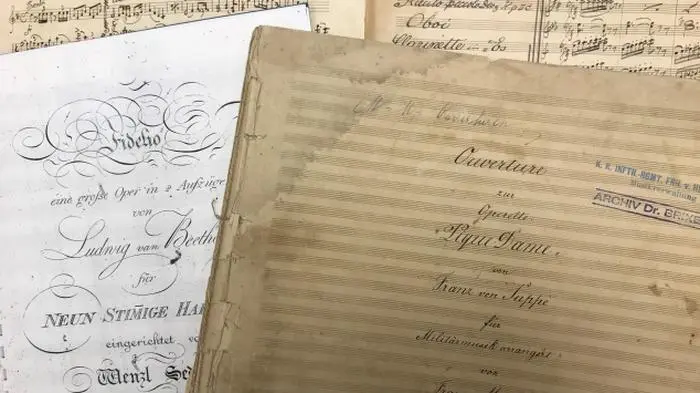 Oboi
Clarinette in Es
Fidelio
eine große Oper in 2 Aufzüge
von
Ludwig van Beetho
für
NEUN STIMIGE HAR
eingerichtet vo
Wenzl Sed
Ouverture
zur
Operette
"Pique Dame"
von
Franz von Suppé
für
Militärmusik arrangirt
von
Franz
K. K. INFTR.-RGMT. FRH. v. H
Musikverwaltung
ARCHIV Dr. BRIXE